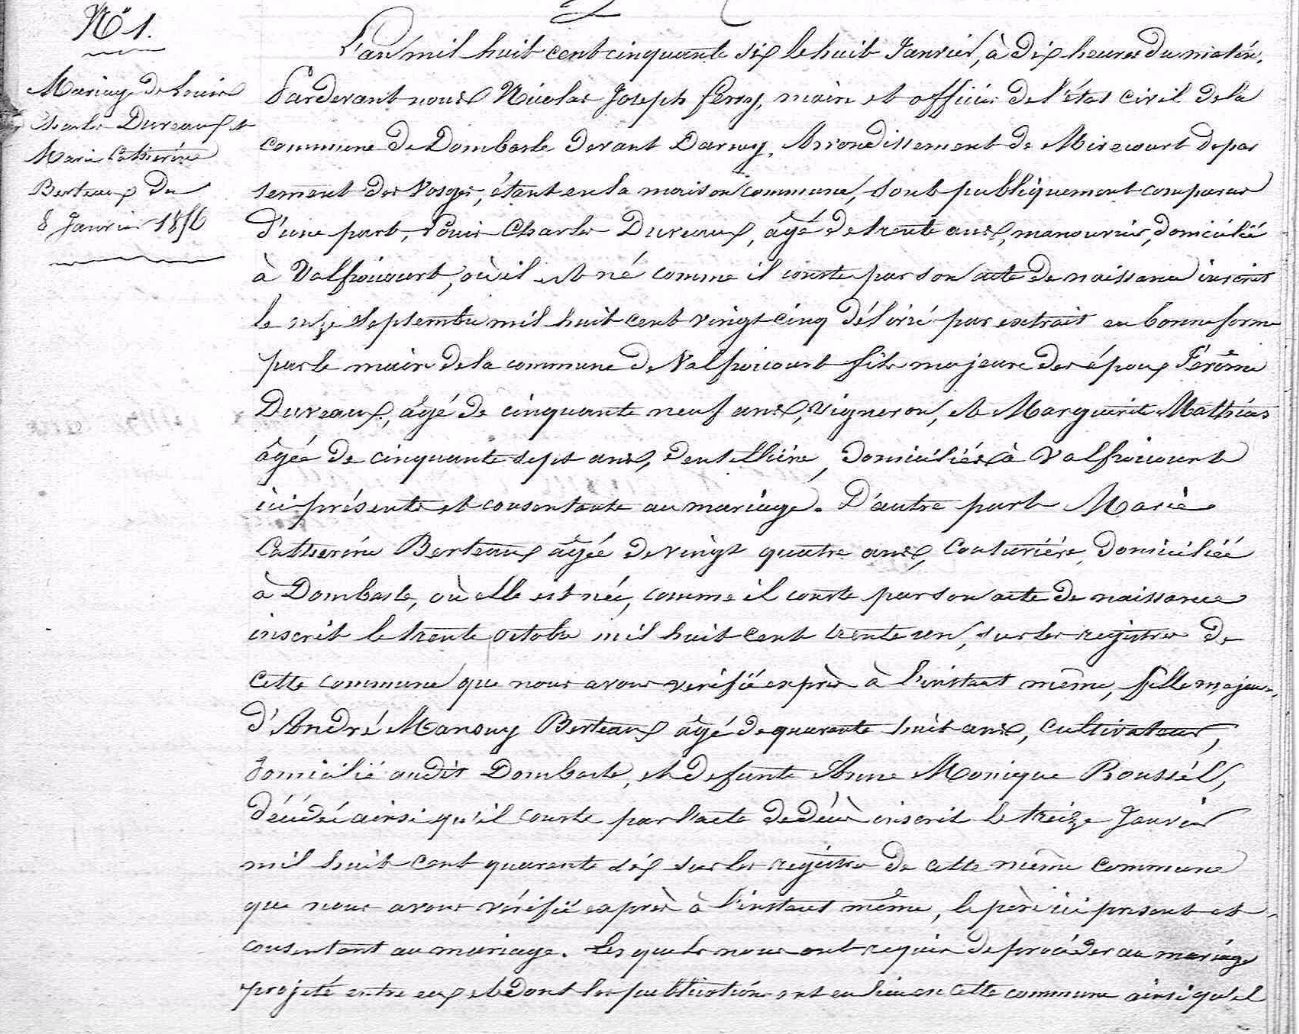 N° 1.
Mariage de Louis
Charles Dureaux et
Marie Catherine
Berteaux du
8 Janvier 1856
L'an mil huit cent cinquante six le huit Janvier, à dix heures du matin,
Pardevant nous Nicolas Joseph Ferry, maire et officier de l'état civil de la
commune de Dombasle devant Darney, Arrondissement de Mirecourt dépar
tement des Vosges, étant en la maison commune, sont publiquement comparus
d'une part, Louis Charles Dureaux, âgé de trente ans, manouvrier, domicilié
à Valfroicourt, où il est né comme il conste par son acte de naissance inscrit
le onze Septembre mil huit cent vingt cinq délivré par extrait en bonne forme
par le maire de la commune de Valfroicourt fils majeur des époux Jérôme
Dureaux, âgé de cinquante neuf ans, vigneron, et Marguerite Mathias
âgée de cinquante sept ans, dentellière, domiciliés à Valfroicourt
ici présents et consentants au mariage. D'autre part Marie
Catherine Berteaux âgée de vingt quatre ans, couturière, domiciliée
à Dombasle, où elle est née, comme il conste par son acte de naissance
inscrit le trente octobre mil huit cent trente un, sur les registres de
cette commune que nous avons vérifié exprès à l'instant même, fille majeure,
d'André Mansuy Berteaux âgé de quarante huit ans, cultivateur,
domicilié audit Dombasle, et défunte Anne Monique Roussel,
décédée ainsi qu'il conste par l'acte de décès inscrit le treize Janvier
mil huit cent quarante six sur les registres de cette même commune
que nous avons vérifié exprès à l'instant même, le père ici présent et
consentant au mariage. Lesquels nous ont requis de procéder au mariage
projeté entre eux et dont les publications ont eu lieu en cette commune ainsi qu'il